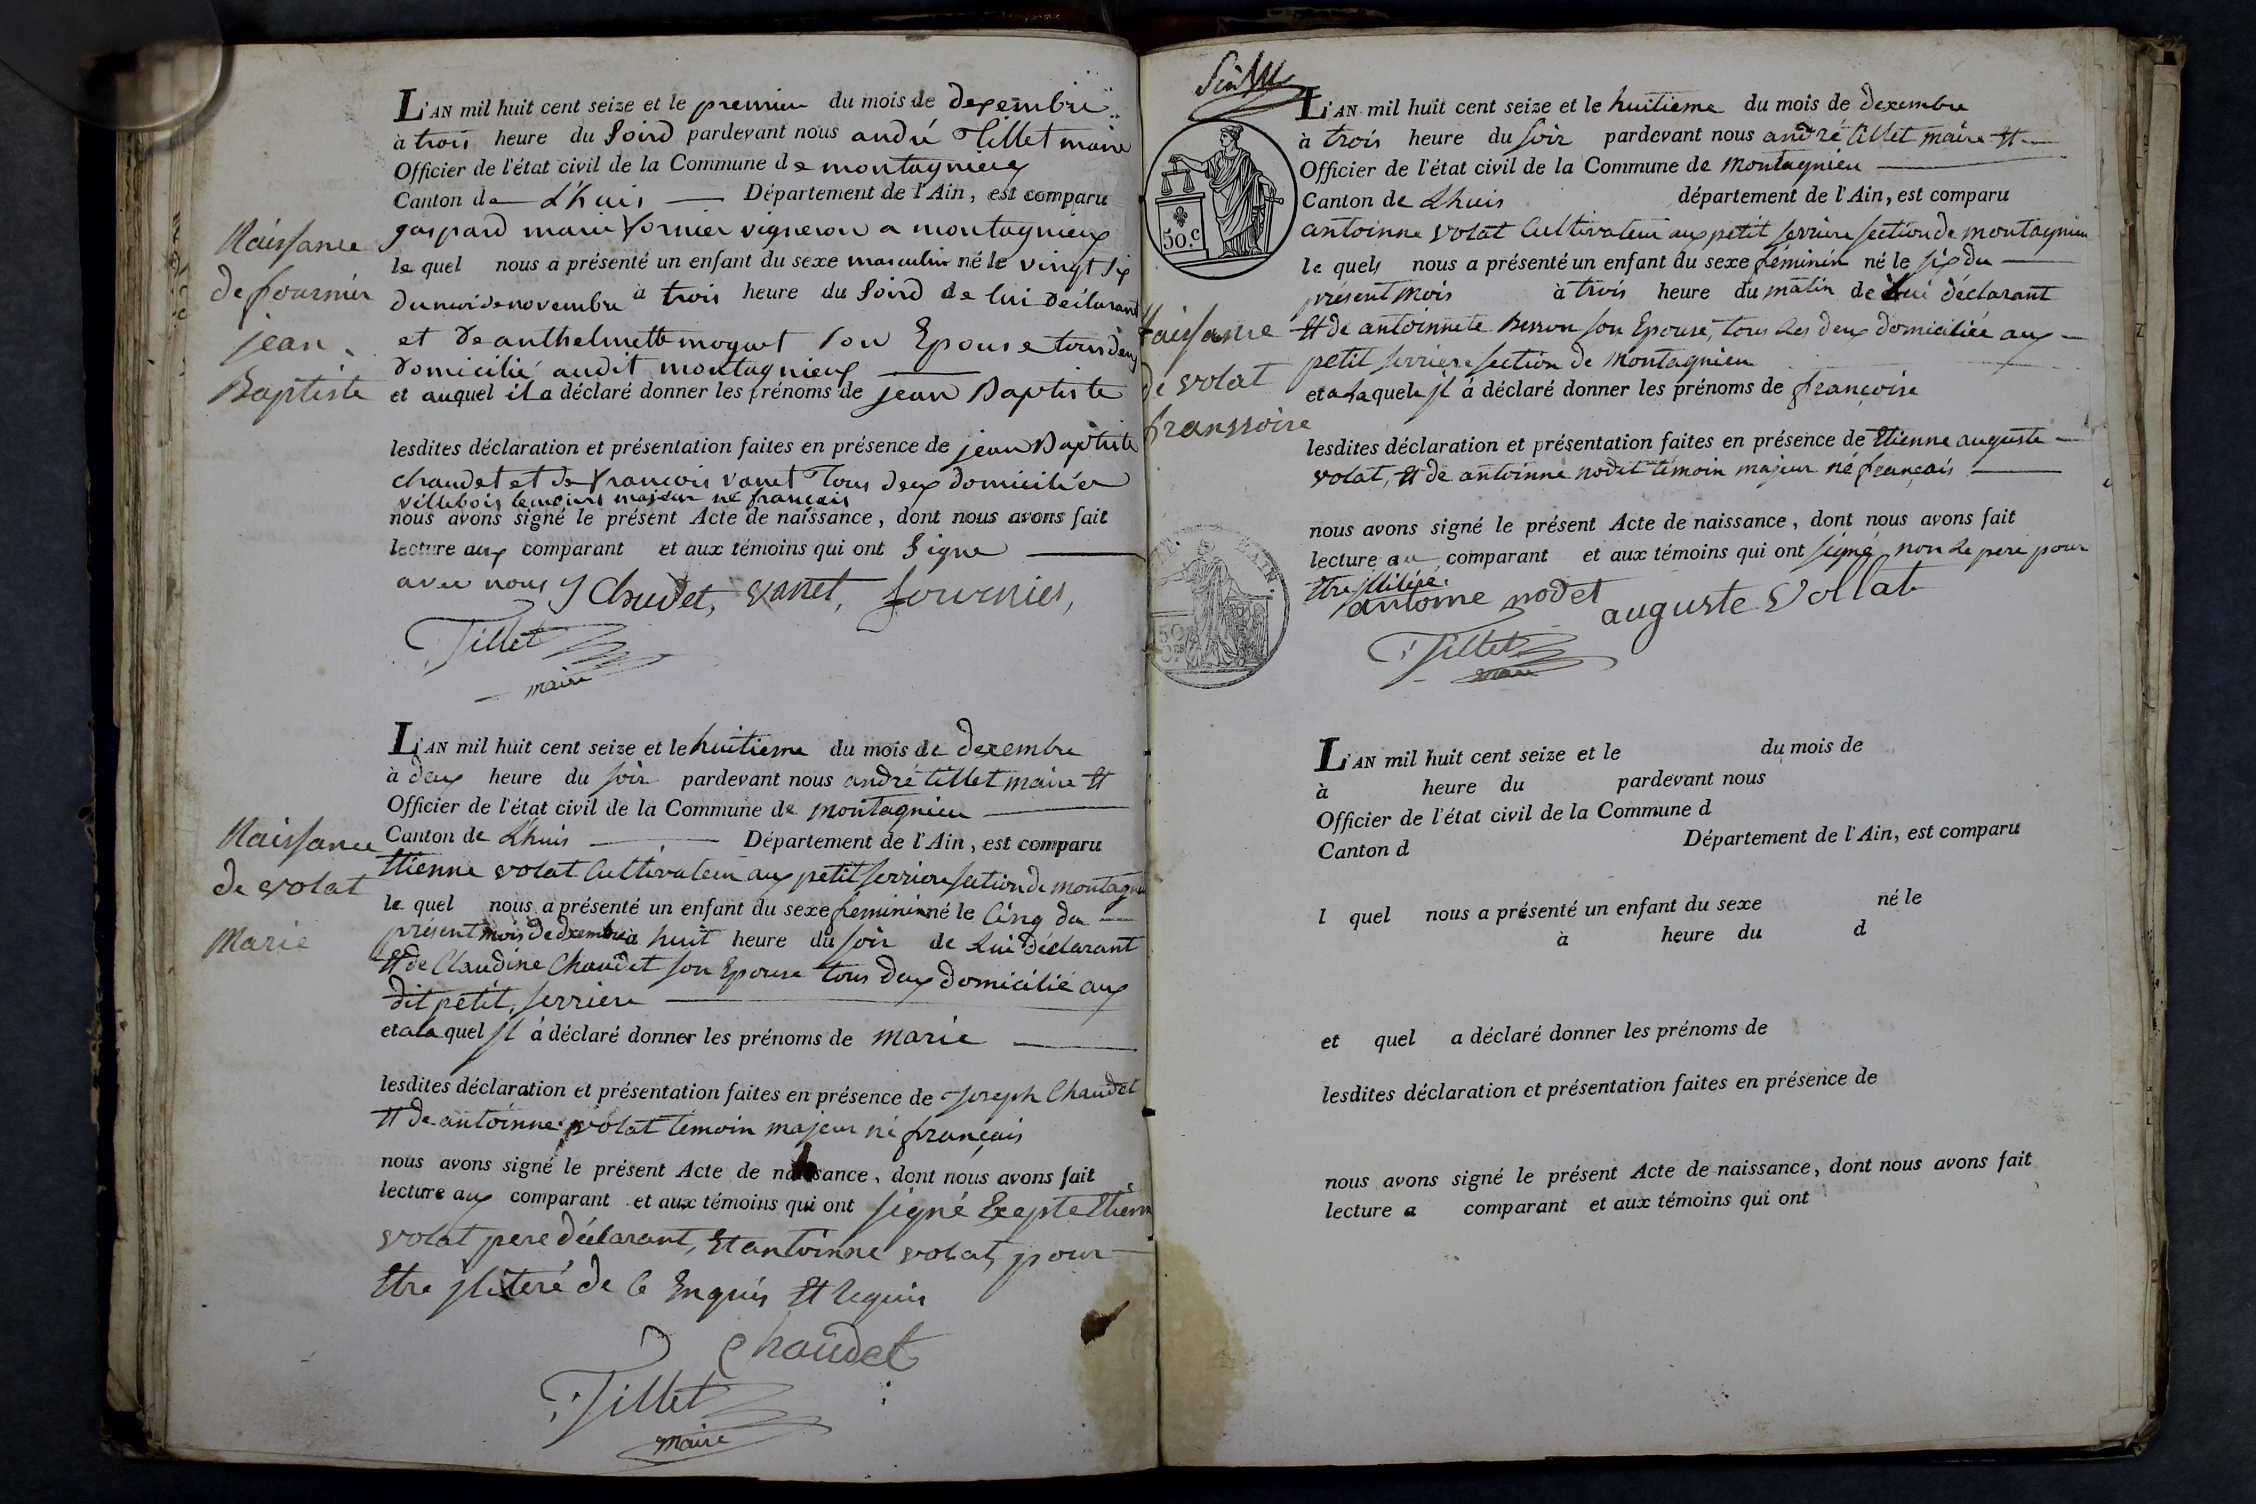 L'AN mil huit cent seize et le premier du mois de decembre
à trois heure du Soird pardevant nous andré Tillet maire
Officier de l'état civil de la Commune de montagnieux
Canton de L'huis Département de l'Ain, est comparu
Naissance
de fournier
jean
Baptiste
gaspard marie fornier vigneron a montagnieux
le quel nous a présenté un enfant du sexe masculin né le vingt six
du moi de novembre à trois heure du Soird de lui Déclarant
et De anthelmette moquet Son Epouse tous deux
Domicilié audit montagnieux
et auquel il a déclaré donner les prénoms de jean Baptiste
lesdites déclaration et présentation faites en présence de jean Baptiste
chaudet et de francois vanet Tous deux domiciliés
villebois temoins majeur né français
nous avons signé le présent Acte de naissance, dont nous avons fait
lecture aux comparant et aux témoins qui ont Signe
avec nous J Chaudet, vanet, fournier,
Tillet
maire
L'AN mil huit cent seize et le huitieme du mois de decembre
à deux heure du soir pardevant nous andré tillet maire Et
Officier de l'état civil de la Commune de montagnieu
Canton de Lhuis Département de l'Ain, est comparu
Naissance
de volat
Marie
Etienne volat Cultivateur aux petit serriere section de montagnieu
le quel nous a présenté un enfant du sexe feminin né le Cinq du
présent mois de decembre à huit heure du soir de Lui Déclarant
Et de Claudine Chaudet son Epouse tous deux domicilié aux
dit petit serriere
et a la quel jl à déclaré donner les prénoms de marie
lesdites déclaration et présentation faites en présence de Joseph Chaudet
Et de antoinne volat temoin majeur né français
nous avons signé le présent Acte de naissance, dont nous avons fait
lecture aux comparant et aux témoins qui ont signé Excepte Etienne
volat pere déclarant, Et antoinne volat, pour
Etre jliteré de Ce Enquis Et requis
Chaudet
Tillet
maire
L'AN mil huit cent seize et le huitieme du mois de decembre
à trois heure du soir pardevant nous andré tillet maire Et
Officier de l'état civil de la Commune de Montagnieu
Canton de Lhuis département de l'Ain, est comparu
50.C
Naissance
de volat
franssoise
antoinne volat Cultivateur aux petit serriere section de montagnieu
le quels nous a présenté un enfant du sexe féminin né le six du
présent Mois à trois heure du matin de Lui déclarant
Et de antoinnete Berron son Epouse, tous Les deux domiciliée aux
petit serriere section de Montagnieu
et a La quele jl à déclaré donner les prénoms de françoise
lesdites déclaration et présentation faites en présence de Etienne auguste
volat, Et de antoinne nodet témoin majeur né français
nous avons signé le présent Acte de naissance, dont nous avons fait
lecture au comparant et aux témoins qui ont signé non Le pere pour
Etre jlitére.
antoine nodet auguste Vollat
Tillet
maire
L'AN mil huit cent seize et le du mois de
à heure du pardevant nous
Officier de l'état civil de la Commune d
Canton d Département de l'Ain, est comparu
l quel nous a présenté un enfant du sexe né le
à heure du d
et quel a déclaré donner les prénoms de
lesdites déclaration et présentation faites en présence de
nous avons signé le présent Acte de naissance, dont nous avons fait
lecture a comparant et aux témoins qui ont